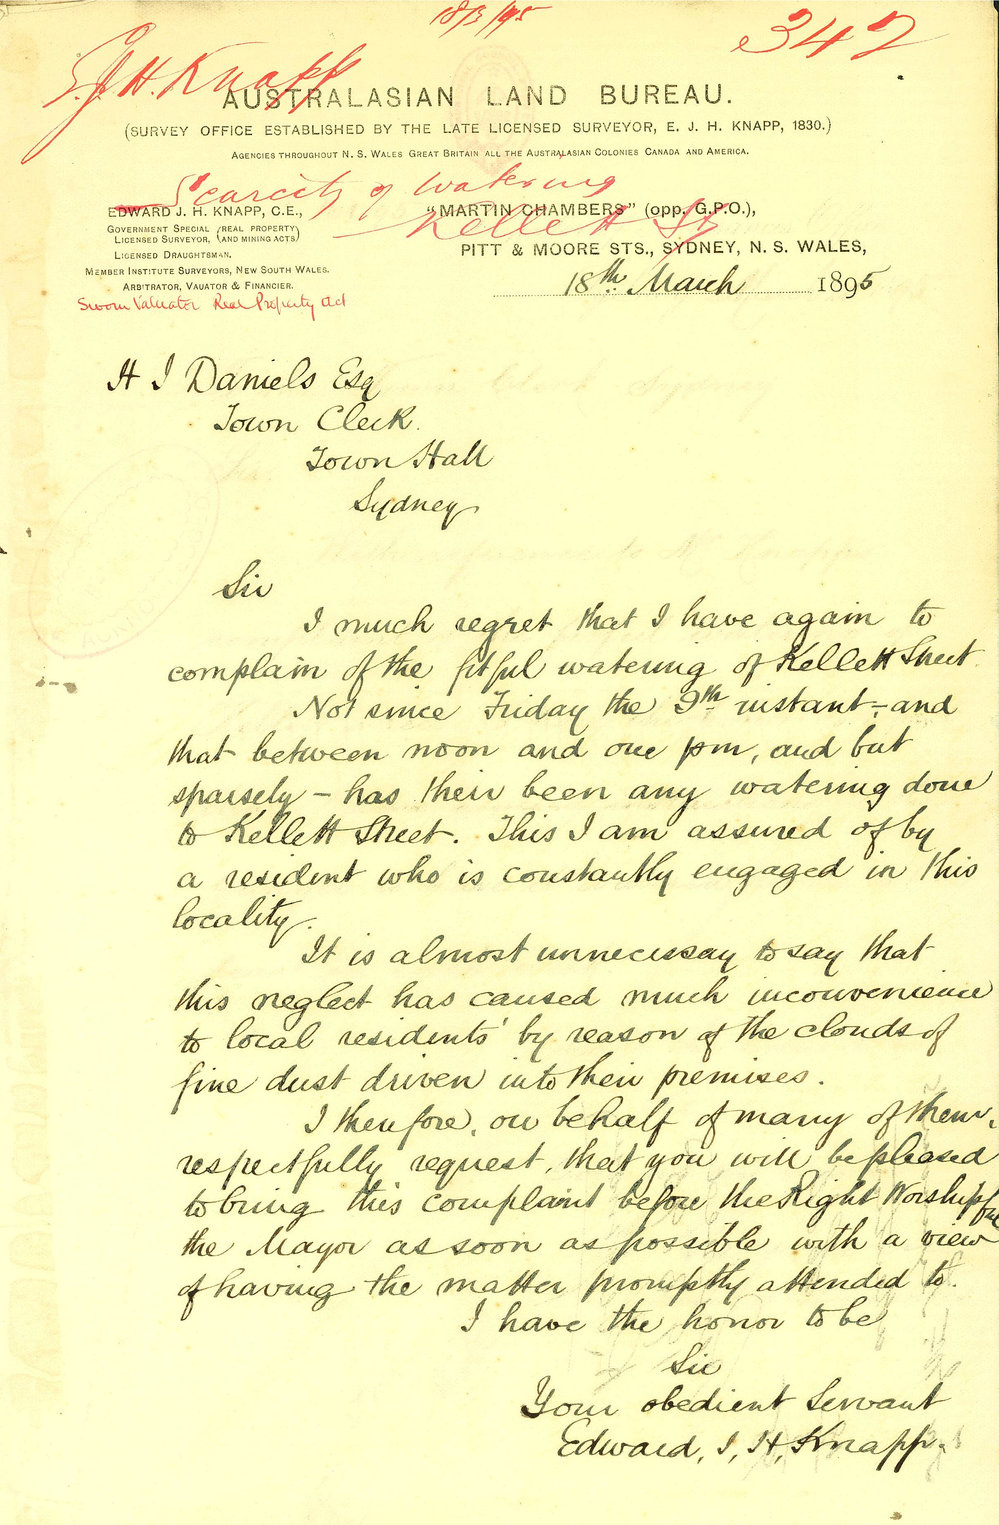 18/3/95
342
E.J.H. Knapp
AUSTRALASIAN LAND BUREAU.
(SURVEY OFFICE ESTABLISHED BY THE LATE LICENSED SURVEYOR, E. J. H. KNAPP, 1830.)
AGENCIES THROUGHOUT N. S. WALES GREAT BRITAIN ALL THE AUSTRALASIAN COLONIES CANADA AND AMERICA.
Scarcity of Watering
Kellett St
EDWARD J. H. KNAPP, C.E.,
GOVERNMENT SPECIAL (REAL PROPERTY
LICENSED SURVEYOR, (AND MINING ACTS)
LICENSED DRAUGHTSMAN.
MEMBER INSTITUTE SURVEYORS, NEW SOUTH WALES.
ARBITRATOR, VAUATOR & FINANCIER.
Sworn Valuator Real Property Act
"MARTIN CHAMBERS" (opp. G.P.O.),
PITT & MOORE STS., SYDNEY, N. S. WALES,
18th March 1895
H J Daniels Esq
Town Clerk.
Town Hall
Sydney
Sir
I much regret that I have again to
complain of the fitful watering of Kellett Street.
Not since Friday the 9th instant, – and
that between noon and one pm, and but
sparsely – has their been any watering done
to Kellett Street. This I am assured of by
a resident who is constantly engaged in this
locality.
It is almost unnecessay to say that
this neglect has caused much inconvenience
to local residents' by reason of the clouds of
fine dust driven into their premises.
I therefore, on behalf of many of them,
respectfully request, that you will be pleased
to bring this complaint before the Right Worshipful
the Mayor as soon as possible with a view
of having the matter promptly attended to.
I have the honor to be
Sir
Your obedient Servant
Edward, J, H, Knapp.